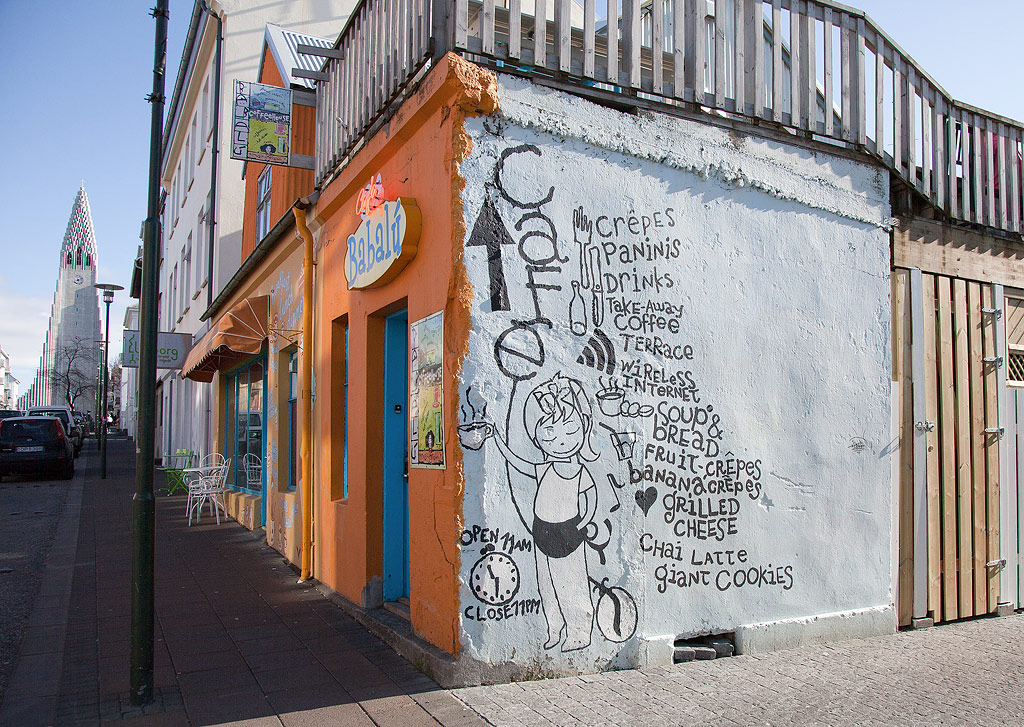 BABALÚ
COFFEEHOUSE
Café
Babalú
Café
Crêpes
Paninis
Drinks
Take-Away
Coffee
Terrace
Wireless
Internet
Soup &
Bread
Fruit-Crêpes
Banana Crêpes
Grilled
Cheese
Chai Latte
Giant Cookies
Open 11AM
Close 11PM